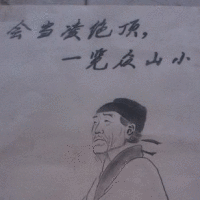 会当凌绝顶，
一览众山小